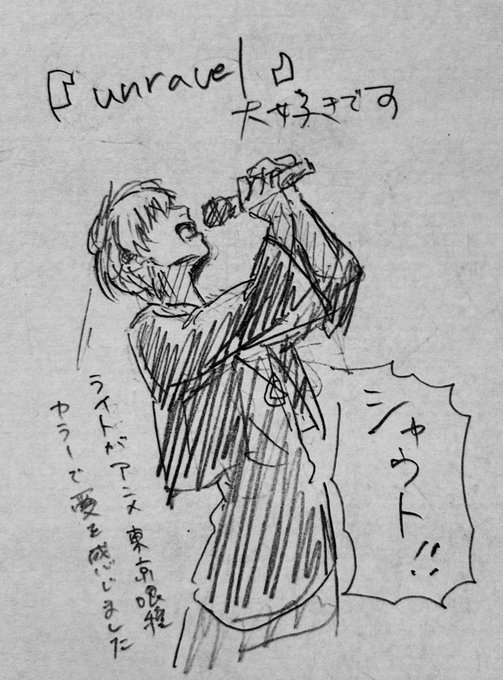 『unravel』
大好きです
シャウト!!
ライトがアニメ東京喰種
カラーで愛を感じました